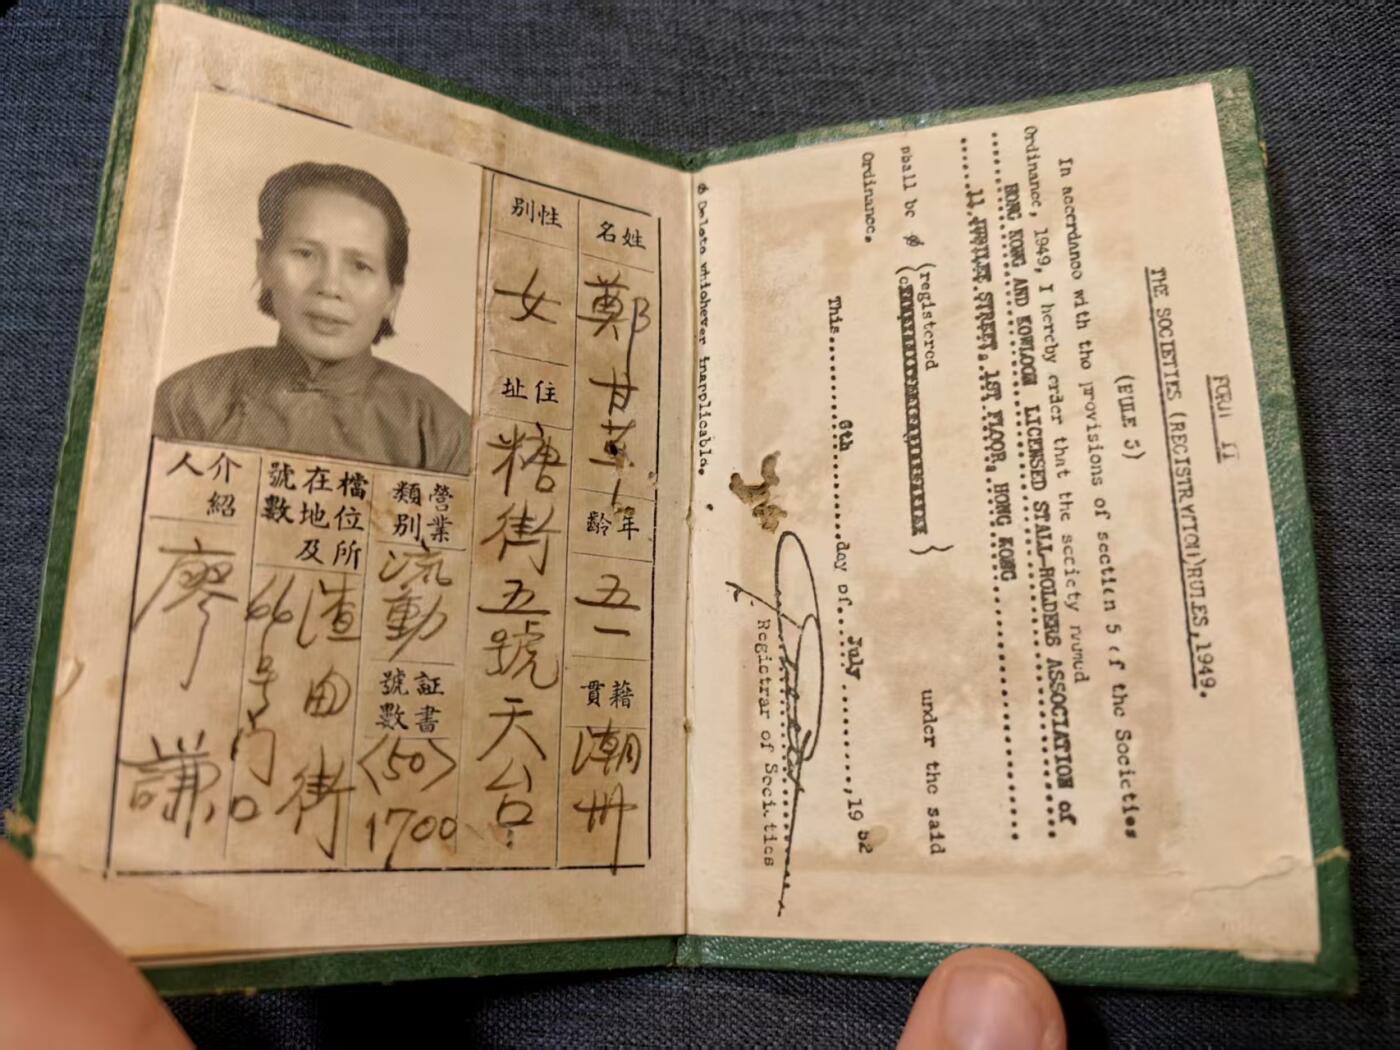 姓名
鄭甘
年齡
五一
籍貫
潮州
性別
女
住址
糖街五號天台
營業類別
流動
証書號數
<50>
1700
檔位所在地及號數
渣甸街
66号门口
介紹人
廖謙
FORM II
THE SOCIETIES (REGISTRATION) RULES, 1949.
(RULE 5)
In accordance with the provisions of section 5 of the Societies
Ordinance, 1949, I hereby order that the society named
HONG KONG AND KOWLOON LICENSED STALL-HOLDERS ASSOCIATION of
11 JUBILEE STREET, 1ST FLOOR, HONG KONG
shall be ø (registered) under the said
Ordinance.
This......6th......day of...July......,1952
Registrar of Societies
ø Delete whichever inapplicable.